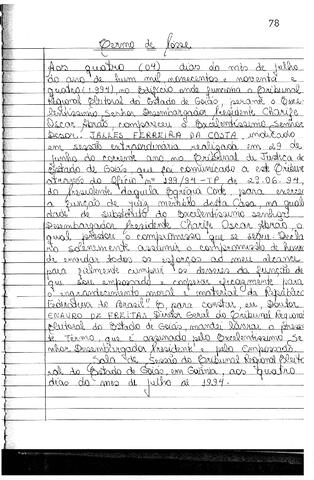 78
Termo de Posse
Aos quatro (04) dias do mês de julho
do ano de hum mil novecentos e noventa e
quatro (1994) no Edifício onde funciona o Tribunal
Regional Eleitoral do Estado de Goiás, perante o Exce-
lentíssimo Senhor Desembargador Presidente Charife
Oscar Abrão, compareceu o Excelentíssimo Senhor
Desor. JALLES FERREIRA DA COSTA, indicado
em sessão extraordinária realizada em 29 de
junho do corrente ano no Tribunal de Justiça do
Estado de Goiás, que foi comunicado a este Tribunal
através do Ofício nº 199/94-TP, de 29.06.94,
do Presidente daquela Egrégia Corte, para exercer
a função de juiz membro desta Casa, na quali
dade de substituto do Excelentíssimo Senhor
Desembargador Presidente Charife Oscar Abrão, o
qual prestou o compromisso que se segue: Decla
ro solenemente assumir o compromisso de honra
de envidar todos os esforços ao meu alcance
para fielmente cumprir os deveres da função de
que sou empossado e cooperar eficazmente para
o engrandecimento moral e material da República
Federativa do Brasil". E, para constar, eu, Doutor
ENAURO DE FREITAS, Diretor Geral do Tribunal Regional
Eleitoral do Estado de Goiás, mandei lavrar o presen
te Termo, que é assinado pelo Excelentíssimo Se
nhor Desembargador Presidente e pelo Empossado.
Sala de Sessão do Tribunal Regional Eleito
ral do Estado de Goiás, em Goiânia, aos quatro
dias do mês de julho de 1994.